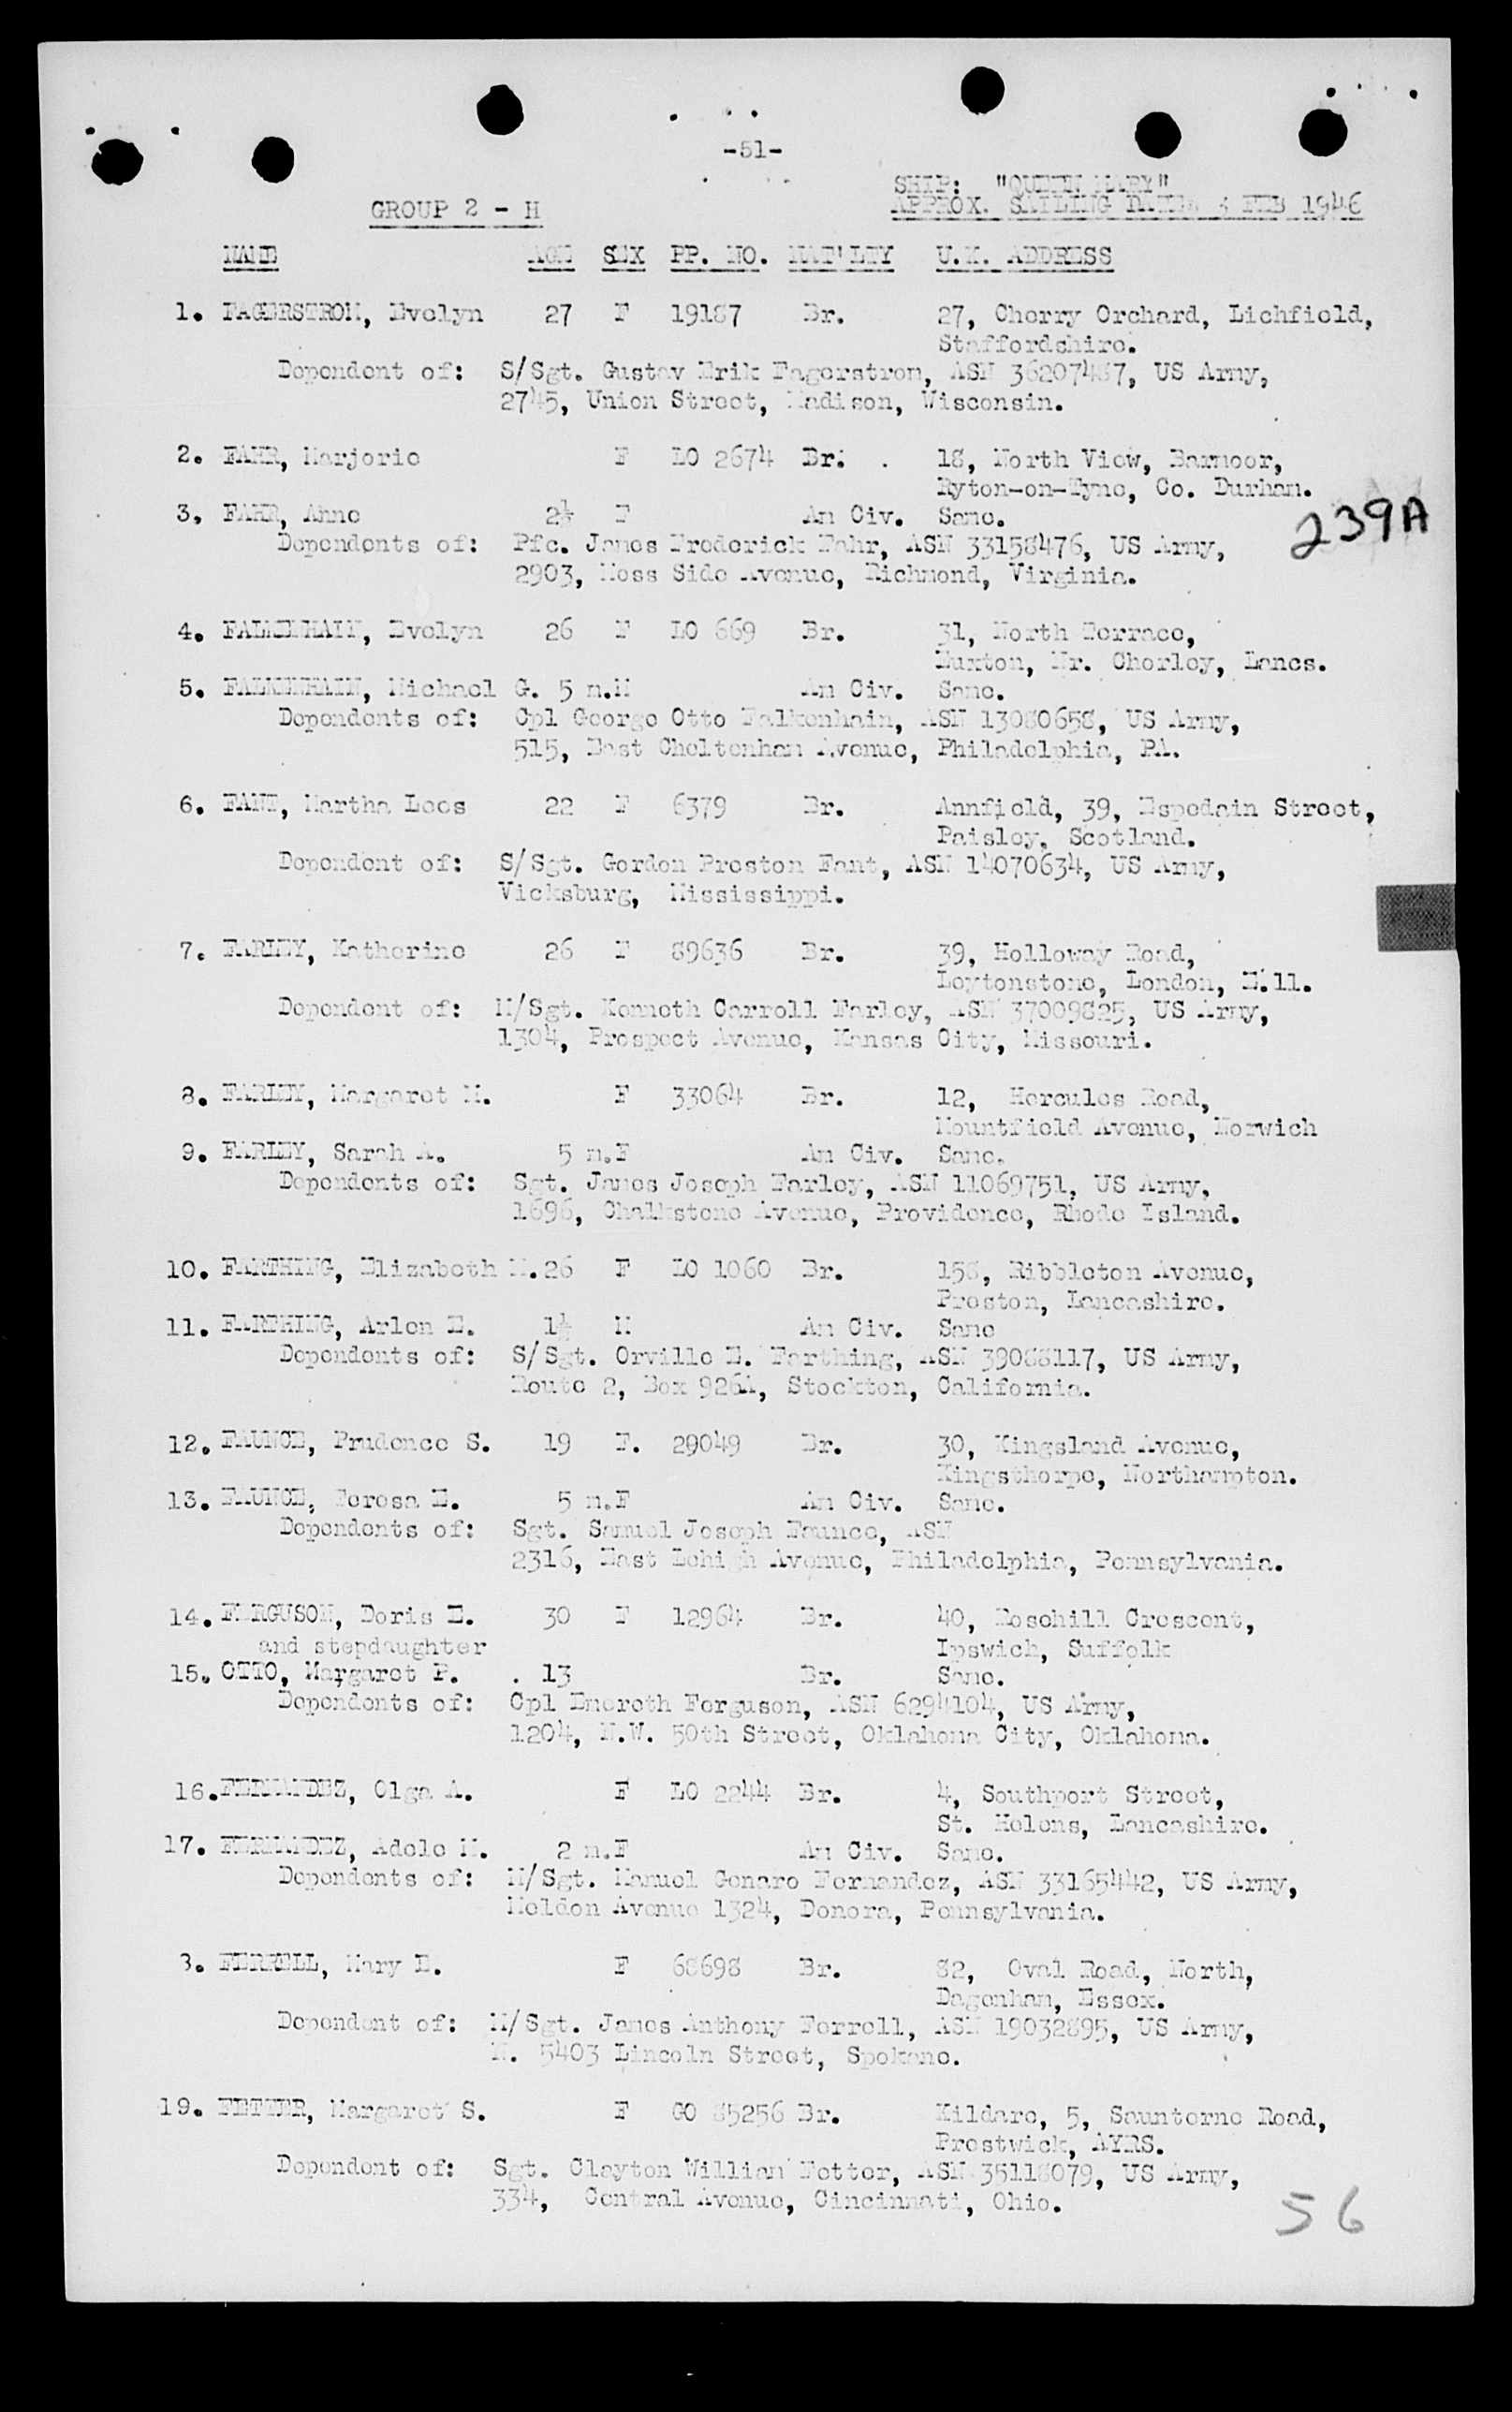 -51-
SHIP: "QUEEN MARY"
GROUP 2 - H
APPROX. SAILING DATE: 3 FEB 1946
NAME AGE SEX PP. NO. NAT'LTY U.K. ADDRESS
1. FAGERSTROM, Evelyn 27 F 19187 Br. 27, Cherry Orchard, Lichfield,
Staffordshire.
Dependent of: S/Sgt. Gustav Erik Fagerstrom, ASN 36207487, US Army,
2745, Union Street, Madison, Wisconsin.
2. FAHR, Marjorie F LO 2674 Br. 18, North View, Barmoor,
Ryton-on-Tyne, Co. Durham.
3. FAHR, Anne 2½ F Am Civ. Same.
239A
Dependents of: Pfc. James Frederick Fahr, ASN 33158476, US Army,
2903, Moss Side Avenue, Richmond, Virginia.
4. FALKENHAIN, Evelyn 26 F LO 669 Br. 31, North Terrace,
Euxton, Nr. Chorley, Lancs.
5. FALKENHAIN, Michael G. 5 m.M Am Civ. Same.
Dependents of: Cpl George Otto Falkenhain, ASN 13080658, US Army,
515, East Cheltenham Avenue, Philadelphia, PA.
6. FANT, Martha Lees 22 F 6379 Br. Annfield, 39, Espedain Street,
Paisley, Scotland.
Dependent of: S/Sgt. Gordon Preston Fant, ASN 14070634, US Army,
Vicksburg, Mississippi.
7. FARLEY, Katherine 26 F 89636 Br. 39, Holloway Road,
Leytonstone, London, E.11.
Dependent of: M/Sgt. Kenneth Carroll Farley, ASN 37009825, US Army,
1304, Prospect Avenue, Kansas City, Missouri.
8. FARLEY, Margaret M. F 33064 Br. 12, Hercules Road,
Mountfield Avenue, Norwich
9. FARLEY, Sarah A. 5 m.F Am Civ. Same.
Dependents of: Sgt. James Joseph Farley, ASN 11069751, US Army,
1696, Chalkstone Avenue, Providence, Rhode Island.
10. FARTHING, Elizabeth M. 26 F LO 1060 Br. 158, Ribbleton Avenue,
Preston, Lancashire.
11. FARTHING, Arlen E. 1½ M Am Civ. Same
Dependents of: S/Sgt. Orville E. Farthing, ASN 39088117, US Army,
Route 2, Box 926A, Stockton, California.
12. FAUNCE, Prudence S. 19 F. 29049 Br. 30, Kingsland Avenue,
Kingsthorpe, Northampton.
13. FAUNCE, Teresa E. 5 m.F Am Civ. Same.
Dependents of: Sgt. Samuel Joseph Faunce, ASN
2316, East Lehigh Avenue, Philadelphia, Pennsylvania.
14. FERGUSON, Doris E. 30 F 12964 Br. 40, Rosehill Crescent,
and stepdaughter Ipswich, Suffolk
15. OTTO, Margaret P. 13 Br. Same.
Dependents of: Cpl Emereth Ferguson, ASN 6294104, US Army,
1204, N.W. 50th Street, Oklahoma City, Oklahoma.
16. FERNANDEZ, Olga A. F LO 2244 Br. 4, Southport Street,
St. Helens, Lancashire.
17. FERNANDEZ, Adele M. 2 m.F Am Civ. Same.
Dependents of: M/Sgt. Manuel Genaro Fernandez, ASN 33165442, US Army,
Meldon Avenue 1324, Donora, Pennsylvania.
8. FERRELL, Mary E. F 68698 Br. 82, Oval Road, North,
Dagenham, Essex.
Dependent of: M/Sgt. James Anthony Ferrell, ASN 19032895, US Army,
N. 5403 Lincoln Street, Spokane.
19. FETTER, Margaret S. F GO 85256 Br. Kildare, 5, Saunterne Road,
Prestwick, AYRS.
Dependent of: Sgt. Clayton William Fetter, ASN 35118079, US Army,
334, Central Avenue, Cincinnati, Ohio.
56